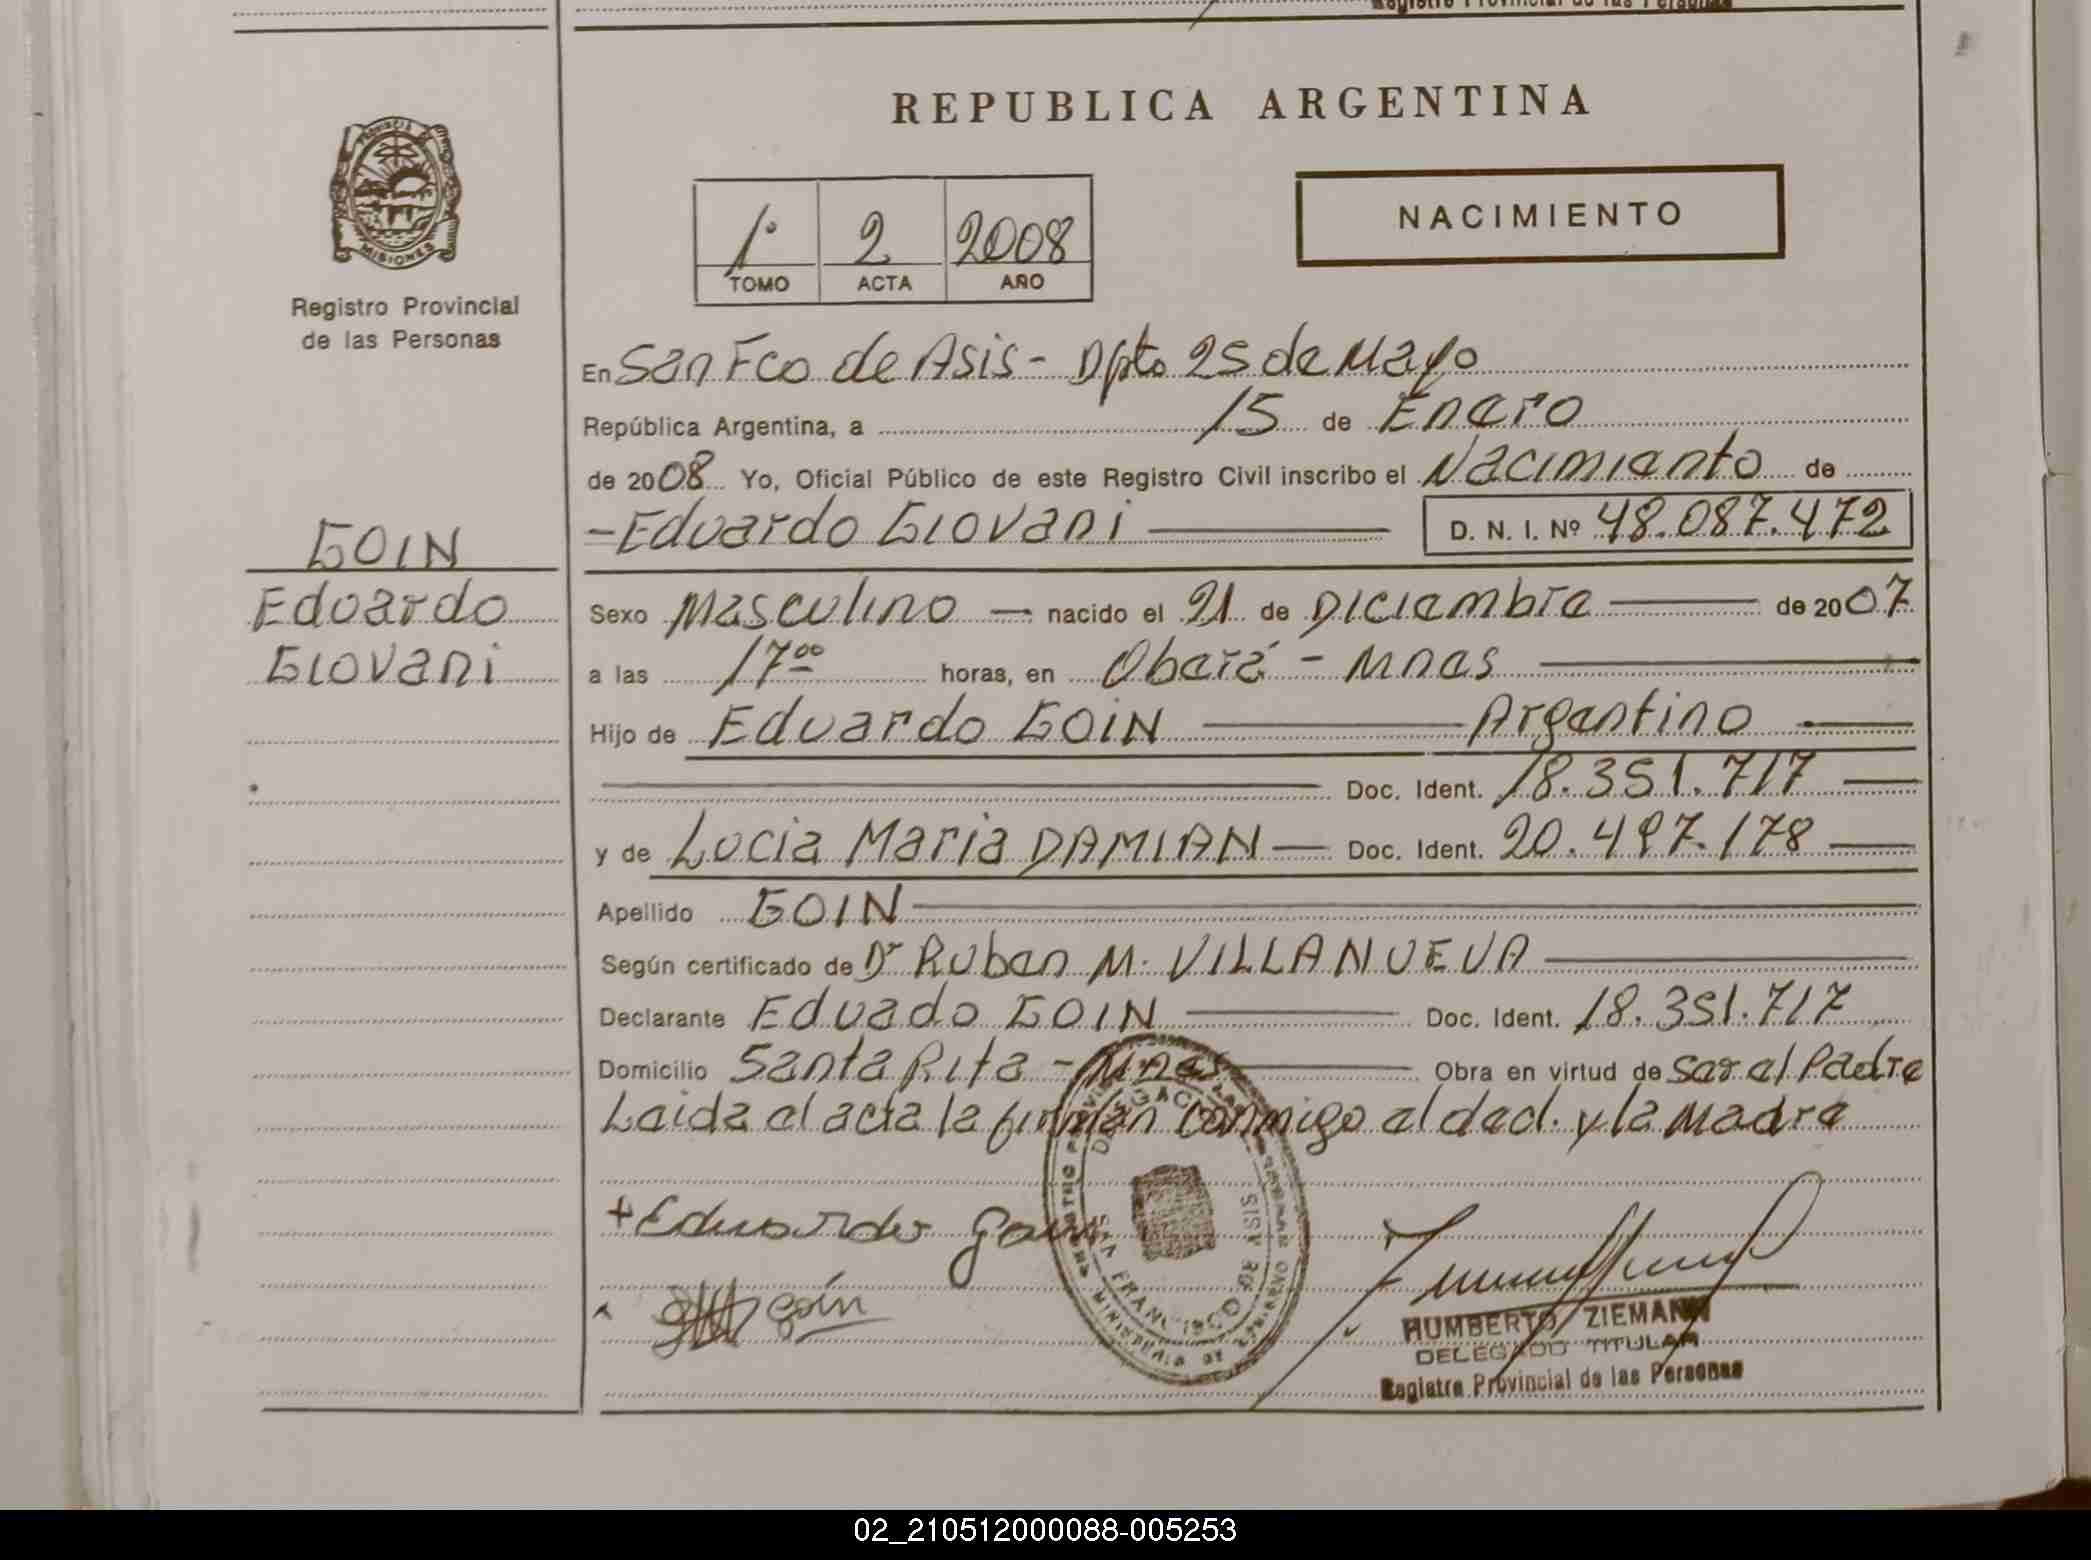 Registro Provincial de las Personas
REPUBLICA ARGENTINA
PROVINCIA DE
MISIONES
Registro Provincial
de las Personas
1º 2 2008
TOMO ACTA AÑO
NACIMIENTO
En San Fco de Asis - Dpto 25 de Mayo
República Argentina, a 15 de Enero
de 2008 Yo, Oficial Público de este Registro Civil inscribo el Nacimiento de
- Eduardo Giovani D. N. I. Nº 48.087.472
GOIN
Eduardo
Giovani
Sexo Masculino nacido el 21 de Diciembre de 2007
a las 17ºº horas, en Oberá - Mnes
Hijo de Eduardo GOIN Argentino
Doc. Ident. 18.351.717
y de Lucia Maria DAMIAN Doc. Ident. 20.497.178
Apellido GOIN
Según certificado de Dr Ruben M. VILLANUEVA
Declarante Eduado GOIN Doc. Ident. 18.351.717
Domicilio Santa Rita - Mnes Obra en virtud de ser el Padre
Leida el acta la firman conmigo el decl. y la Madre
+ Eduardo Goin
Goin
SAN FRANCISCO DE ASIS
HUMBERTO ZIEMANN
DELEGADO TITULAR
Registro Provincial de las Personas
02_210512000088-005253